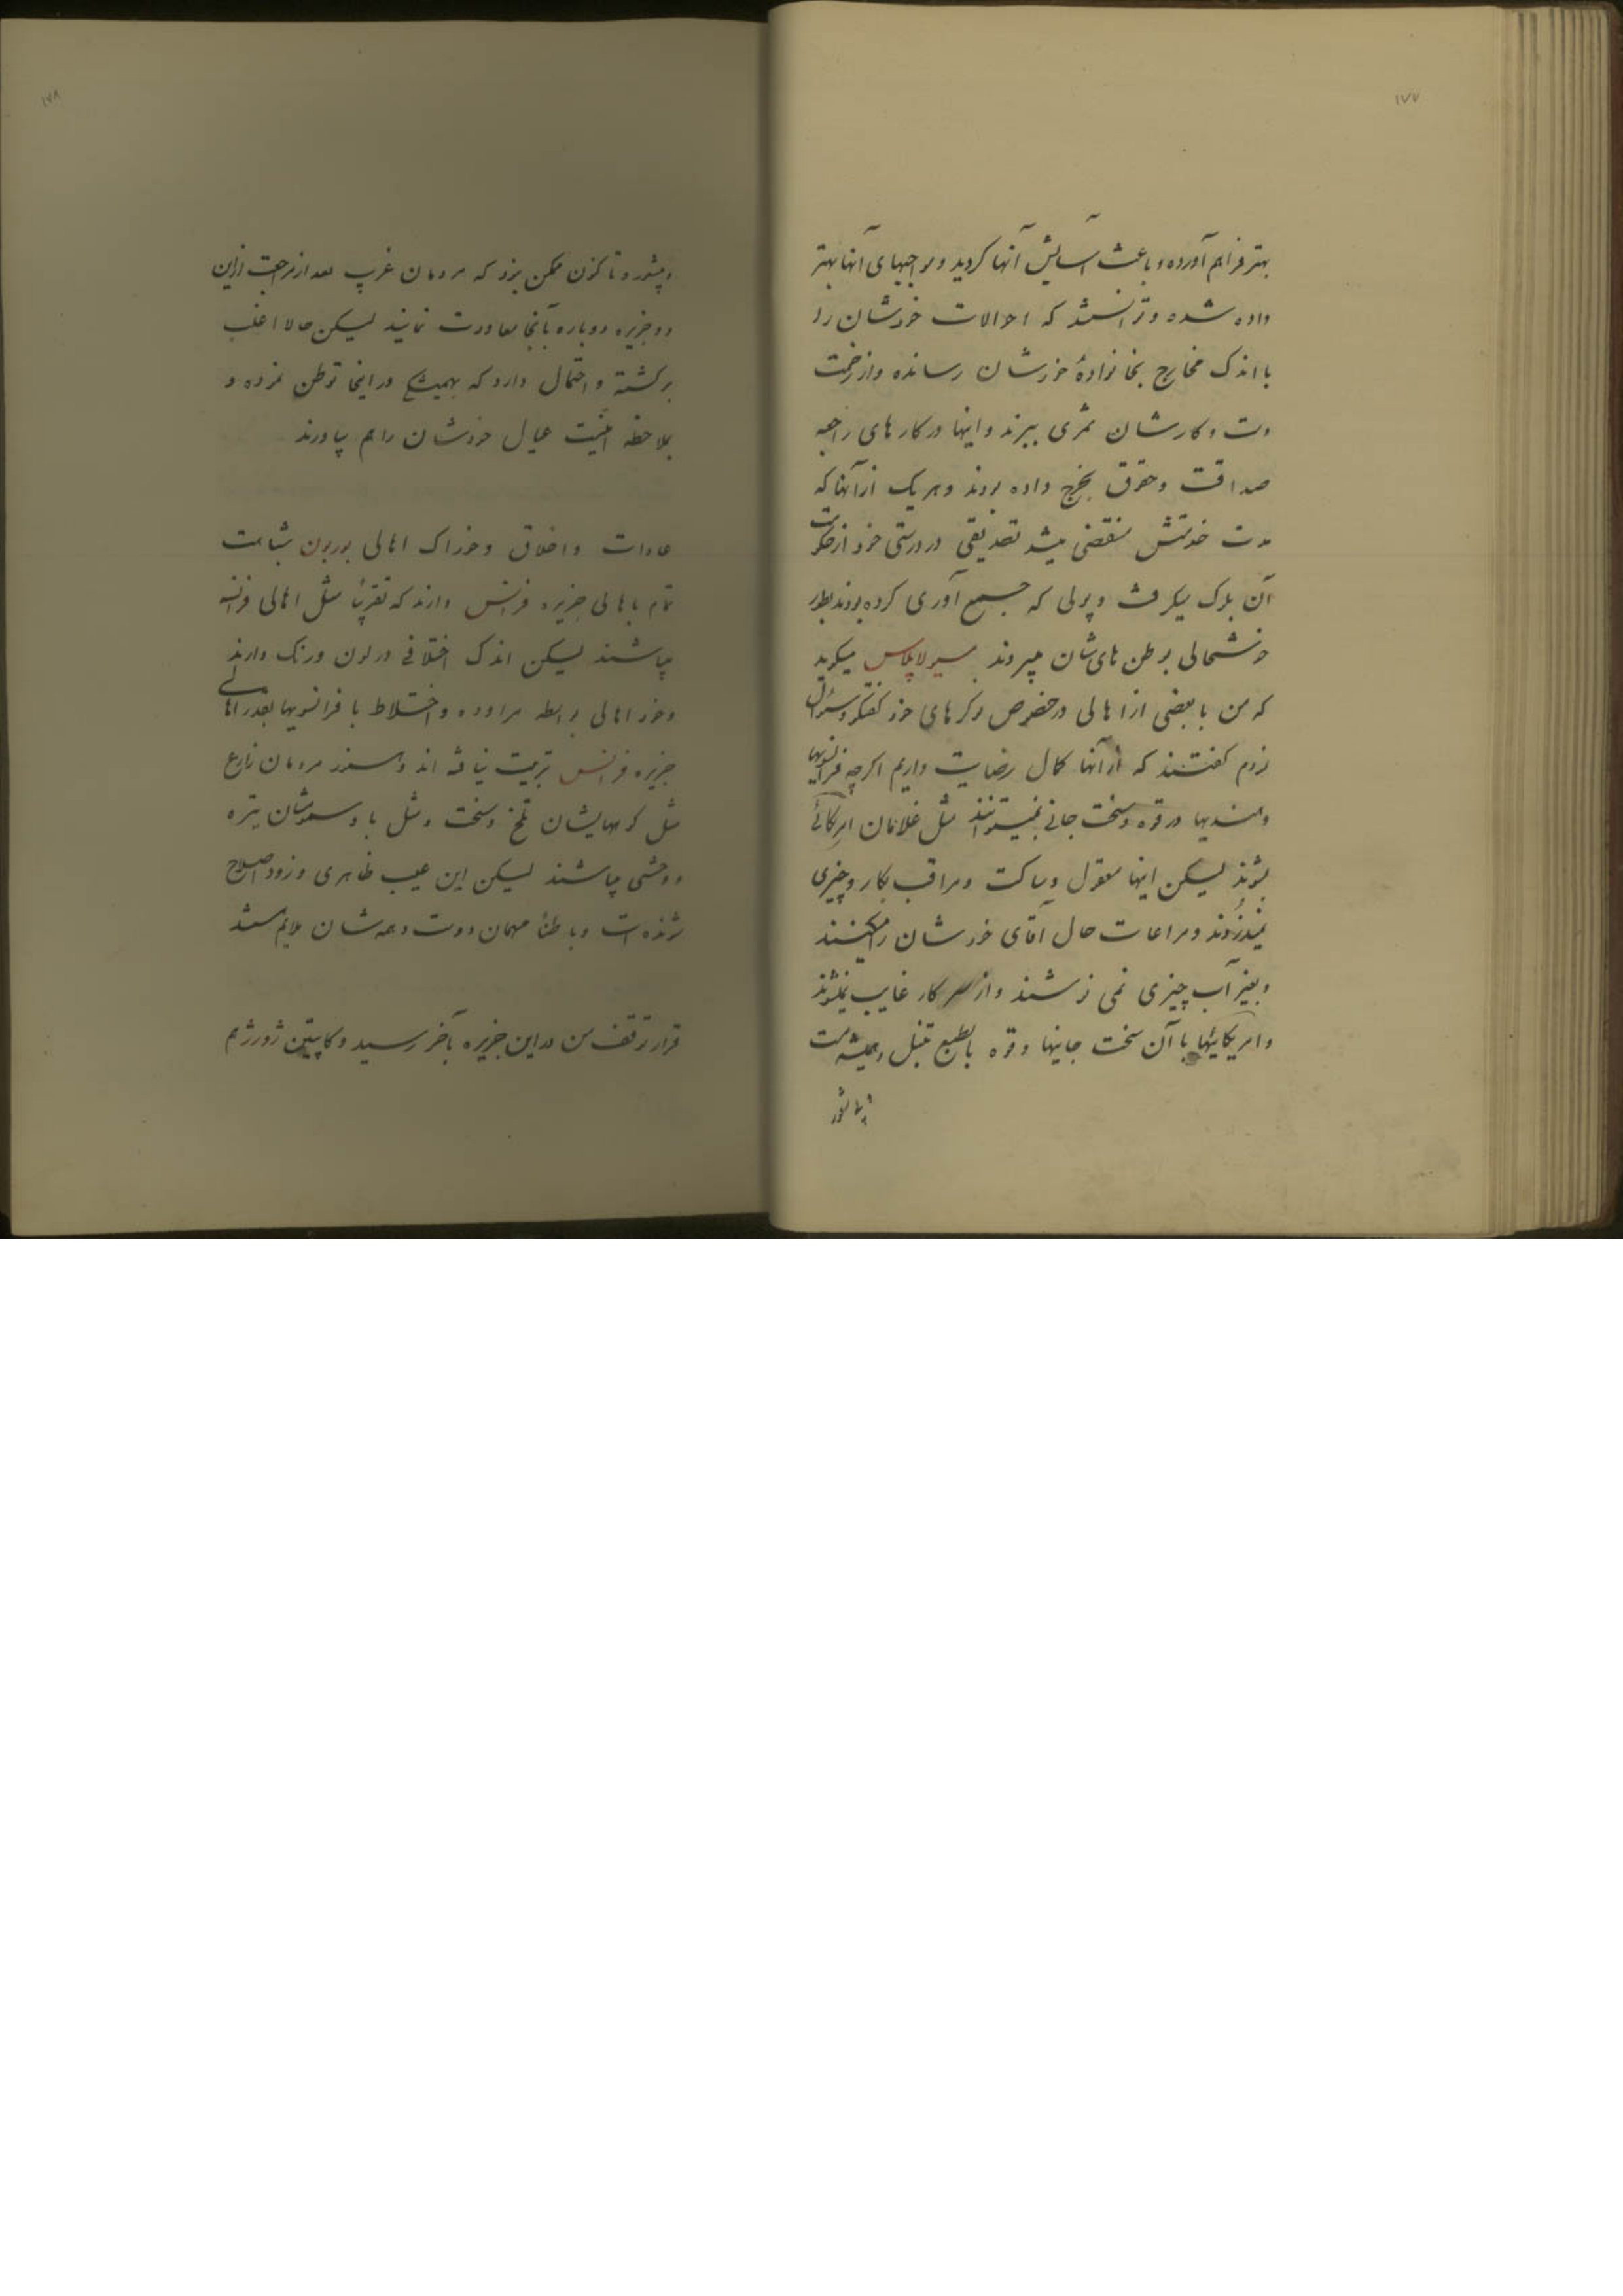 ۱۷۷
بهتر فراهم آورده و باعث آسایش آنها گردید و مواجبهای آنها بهتر
داده شده و توانستند که احوالات خودشان را
با اندک مخارج بخانوادهٔ خودشان رسانده و از زحمت
دست و کارشان ثمری ببرند و اینها در کارهای راجعه
صداقت و حقوق بخرج داده بودند و هر یک از آنها که
مدت خدمتش منقضی میشد تصدیقی در درستی خود از حکومت
آن بلوک میگرفت و پولی که جمع آوری کرده بودند بطور
خوشحالی بوطن های شان میبردند مسیو لاپلاس میگوید
که من با بعضی از اهالی در خصوص نوکرهای خود گفتگو و سئوال
نمودم گفتند که از آنها کمال رضایت داریم اگر چه فرانسویها
و هندیها در قوه و سخت جانی نمیتوانند مثل غلامان امریکائی
بشوند لیکن اینها معقول و ساکت و مراقب بکار و چیزی
نمیدزدند و مراعات حال آقای خودشان را میکنند
و بغیر آب چیزی نمی نوشند و از سر کار غایب نمیشوند
و امریکائیها با آن سخت جانیها و قوه بالطبع تنبل و همیشه مست
۱۷۸
و میشوند و تا کنون ممکن بود که مردمان غرب بعد از مراجعت از این
دو جزیره دوباره بآنجا معاودت نمایند لیکن حالا اغلب
برگشته و احتمال دارد که همیشه در اینجا توطن نموده و
بملاحظه امنیت عیال خودشان را هم بیاورند
عادات و اخلاق و خوراک اهالی بوربون شباهت
تمام باهالی جزیره فرانس دارند که تقریباً مثل اهالی فرانسه
میباشند لیکن اندک اختلافی در لون و رنگ دارند
و خود اهالی بواسطه مراوده و اختلاط با فرانسویها بقدر اهالی
جزیره فرانس تربیت نیافته اند و هنوز مردمان زارع
مثل کوههایشان تلخ و سخت و مثل باد سمومشان تیره
و وحشی میباشند لیکن این عیب ظاهری و زود اصلاح
شونده است و باطناً مهمان دوست و همه شان ملایم هستند
قرار توقف من در این جزیره بآخر رسید و کاپیتین ژورژ هم